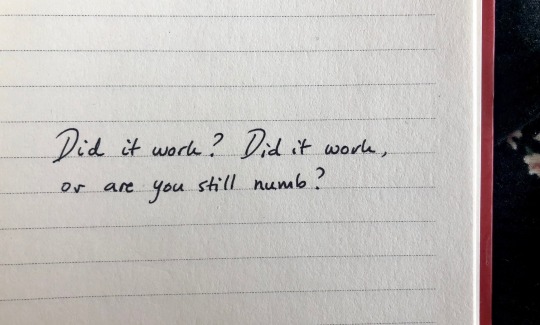 Did it work? Did it work,
or are you still numb?